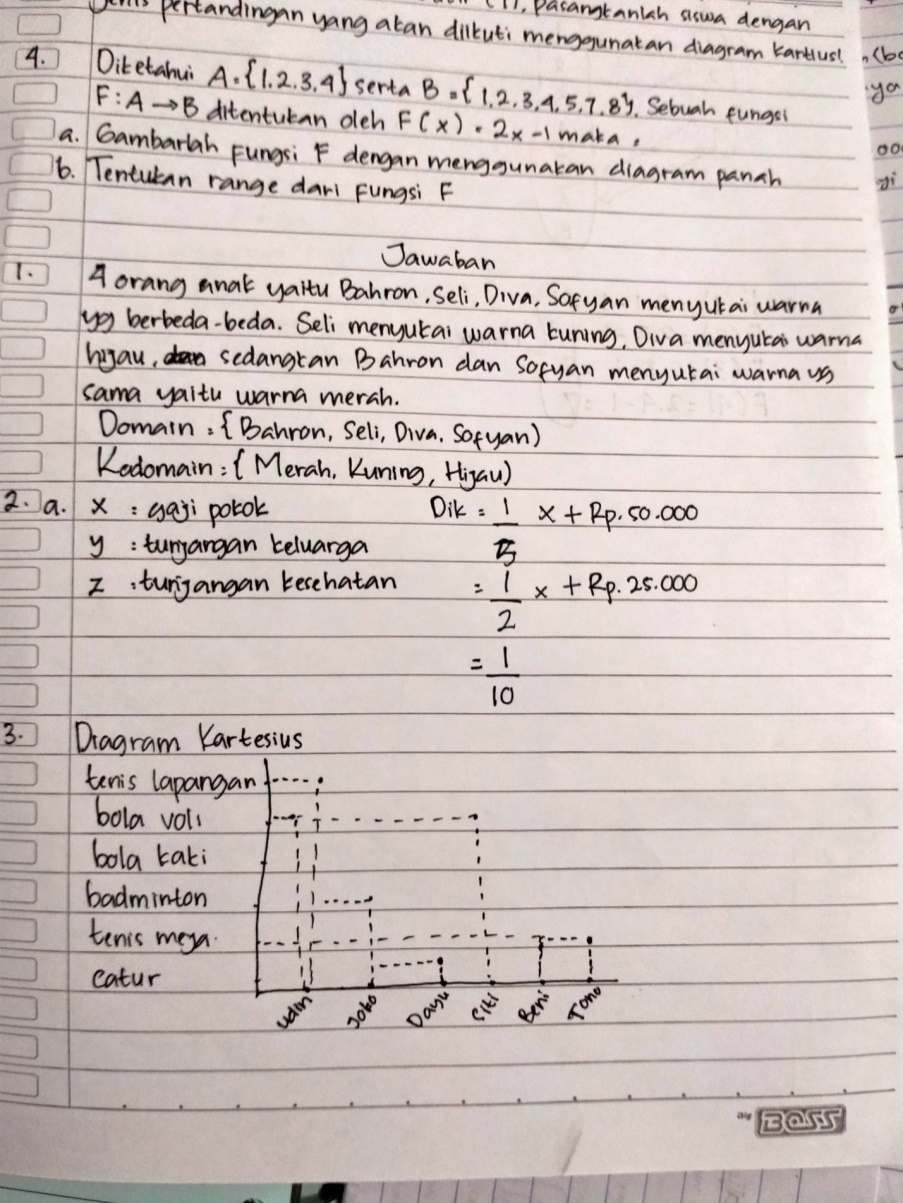 pertandingan yang akan diikuti menggunakan diagram kartius!
(1), pasangkanlah siswa dengan
4. Diketahui A = {1.2.3.4} serta B = {1,2,3,4,5,7,8}. Sebuah fungsi
F : A → B ditentukan oleh F(x) = 2x - 1 maka,
a. Gambarlah fungsi F dengan menggunakan diagram panah
b. Tentukan range dari fungsi F
Jawaban
1. 4 orang anak yaitu Bahron, Seli, Diva, Sofyan menyukai warna
yg berbeda-beda. Seli menyukai warna kuning, Diva menyukai warna
hijau, sedangkan Bahron dan Sofyan menyukai warna yg
sama yaitu warna merah.
Domain : { Bahron, Seli, Diva, Sofyan)
Kodomain : { Merah, Kuning, Hijau)
2. a. x : gaji pokok Dik = 1/5 x + Rp. 50.000
y : tunjangan keluarga
z : tunjangan kesehatan = 1/2 x + Rp. 25.000
= 1/10
3. Diagram Kartesius
tenis lapangan
bola voli
bola kaki
badminton
tenis meja.
catur
Udin Joko Dayu Citi Beni Tono
BOSS